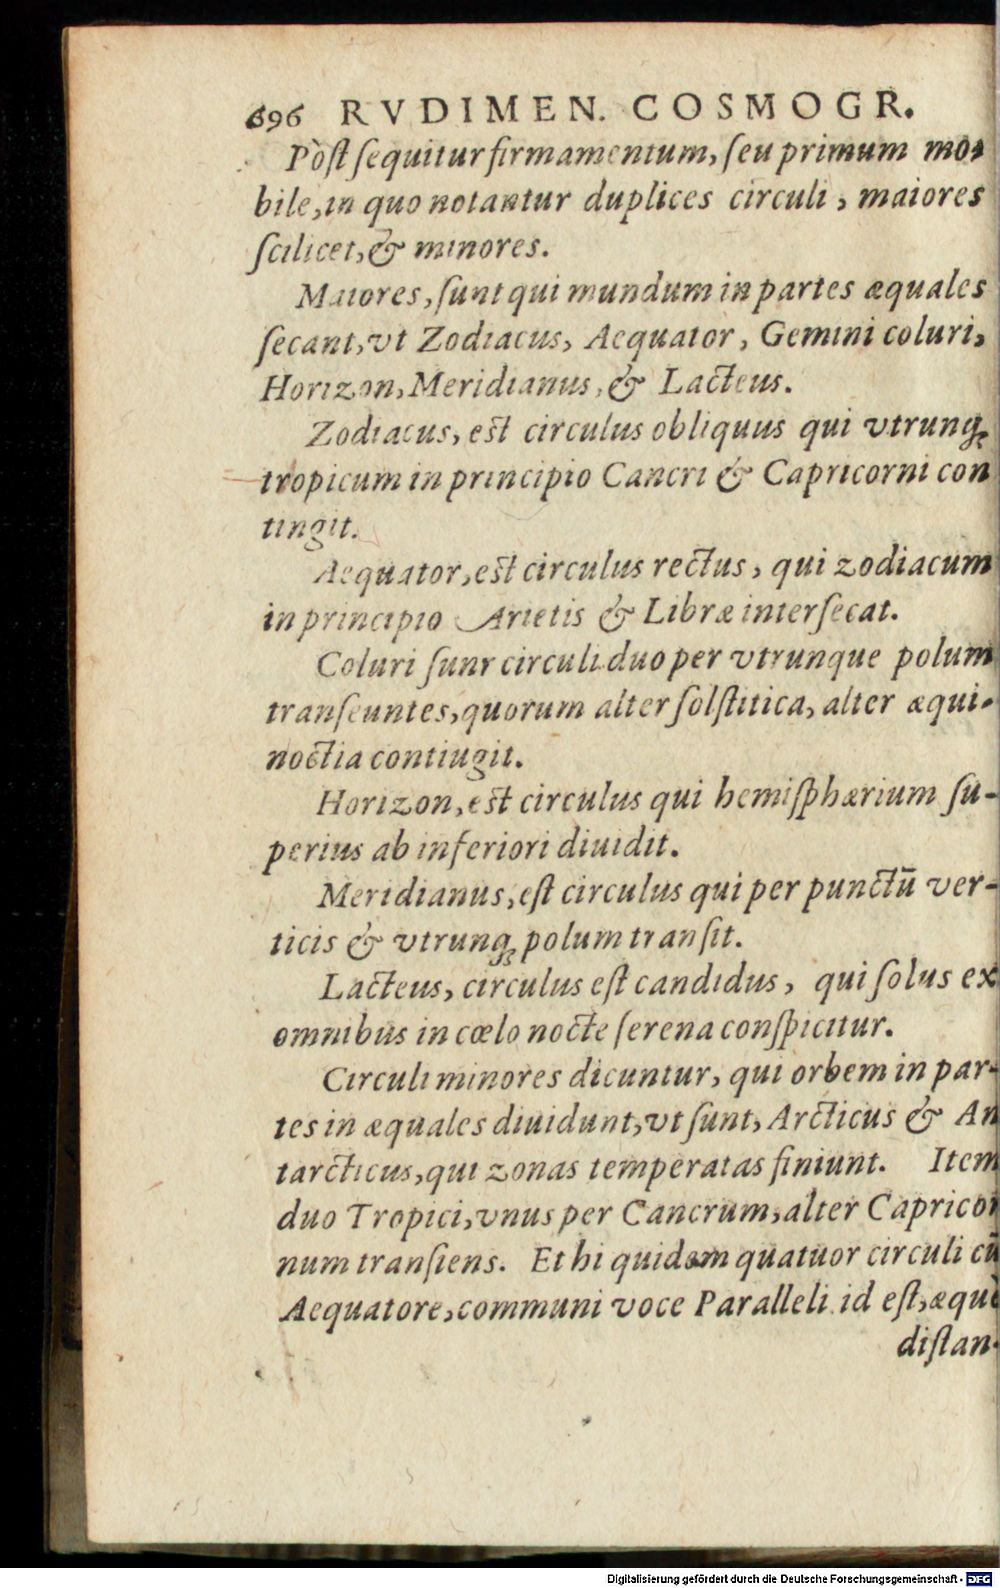 696 RVDIMEN. COSMOGR.
Pòst ſequitur firmamentum, ſeu primum mo-
bile, in quo notantur duplices circuli, maiores
ſcilicet, & minores.
Maiores, ſunt qui mundum in partes æquales
ſecant, vt Zodiacus, Aequator, Gemini coluri,
Horizon, Meridianus, & Lacteus.
Zodiacus, est circulus obliquus qui vtrunq́;
tropicum in principio Cancri & Capricorni con
tingit.
Aequator, est circulus rectus, qui zodiacum
in principio Arietis & Libræ interſecat.
Coluri ſunr circuli duo per vtrunque polum
tranſeuntes, quorum alter ſolſtitica, alter æqui-
noctia contiugit.
Horizon, est circulus qui hemiſphærium ſu-
perius ab inferiori diuidit.
Meridianus, eſt circulus qui per punctū ver-
ticis & vtrunq; polum tranſit.
Lacteus, circulus eſt candidus, qui ſolus ex
omnibus in cœlo nocte ſerena conſpicitur.
Circuli minores dicuntur, qui orbem in par-
tes in æquales diuidunt, vt ſunt, Arcticus & An
tarcticus, qui zonas temperatas finiunt. Item
duo Tropici, vnus per Cancrum, alter Capricor
num tranſiens. Et hi quidem quatuor circuli cū
Aequatore, communi voce Paralleli id eſt, æquè
diſtan-
Digitalisierung gefördert durch die Deutsche Forschungsgemeinschaft - DFG